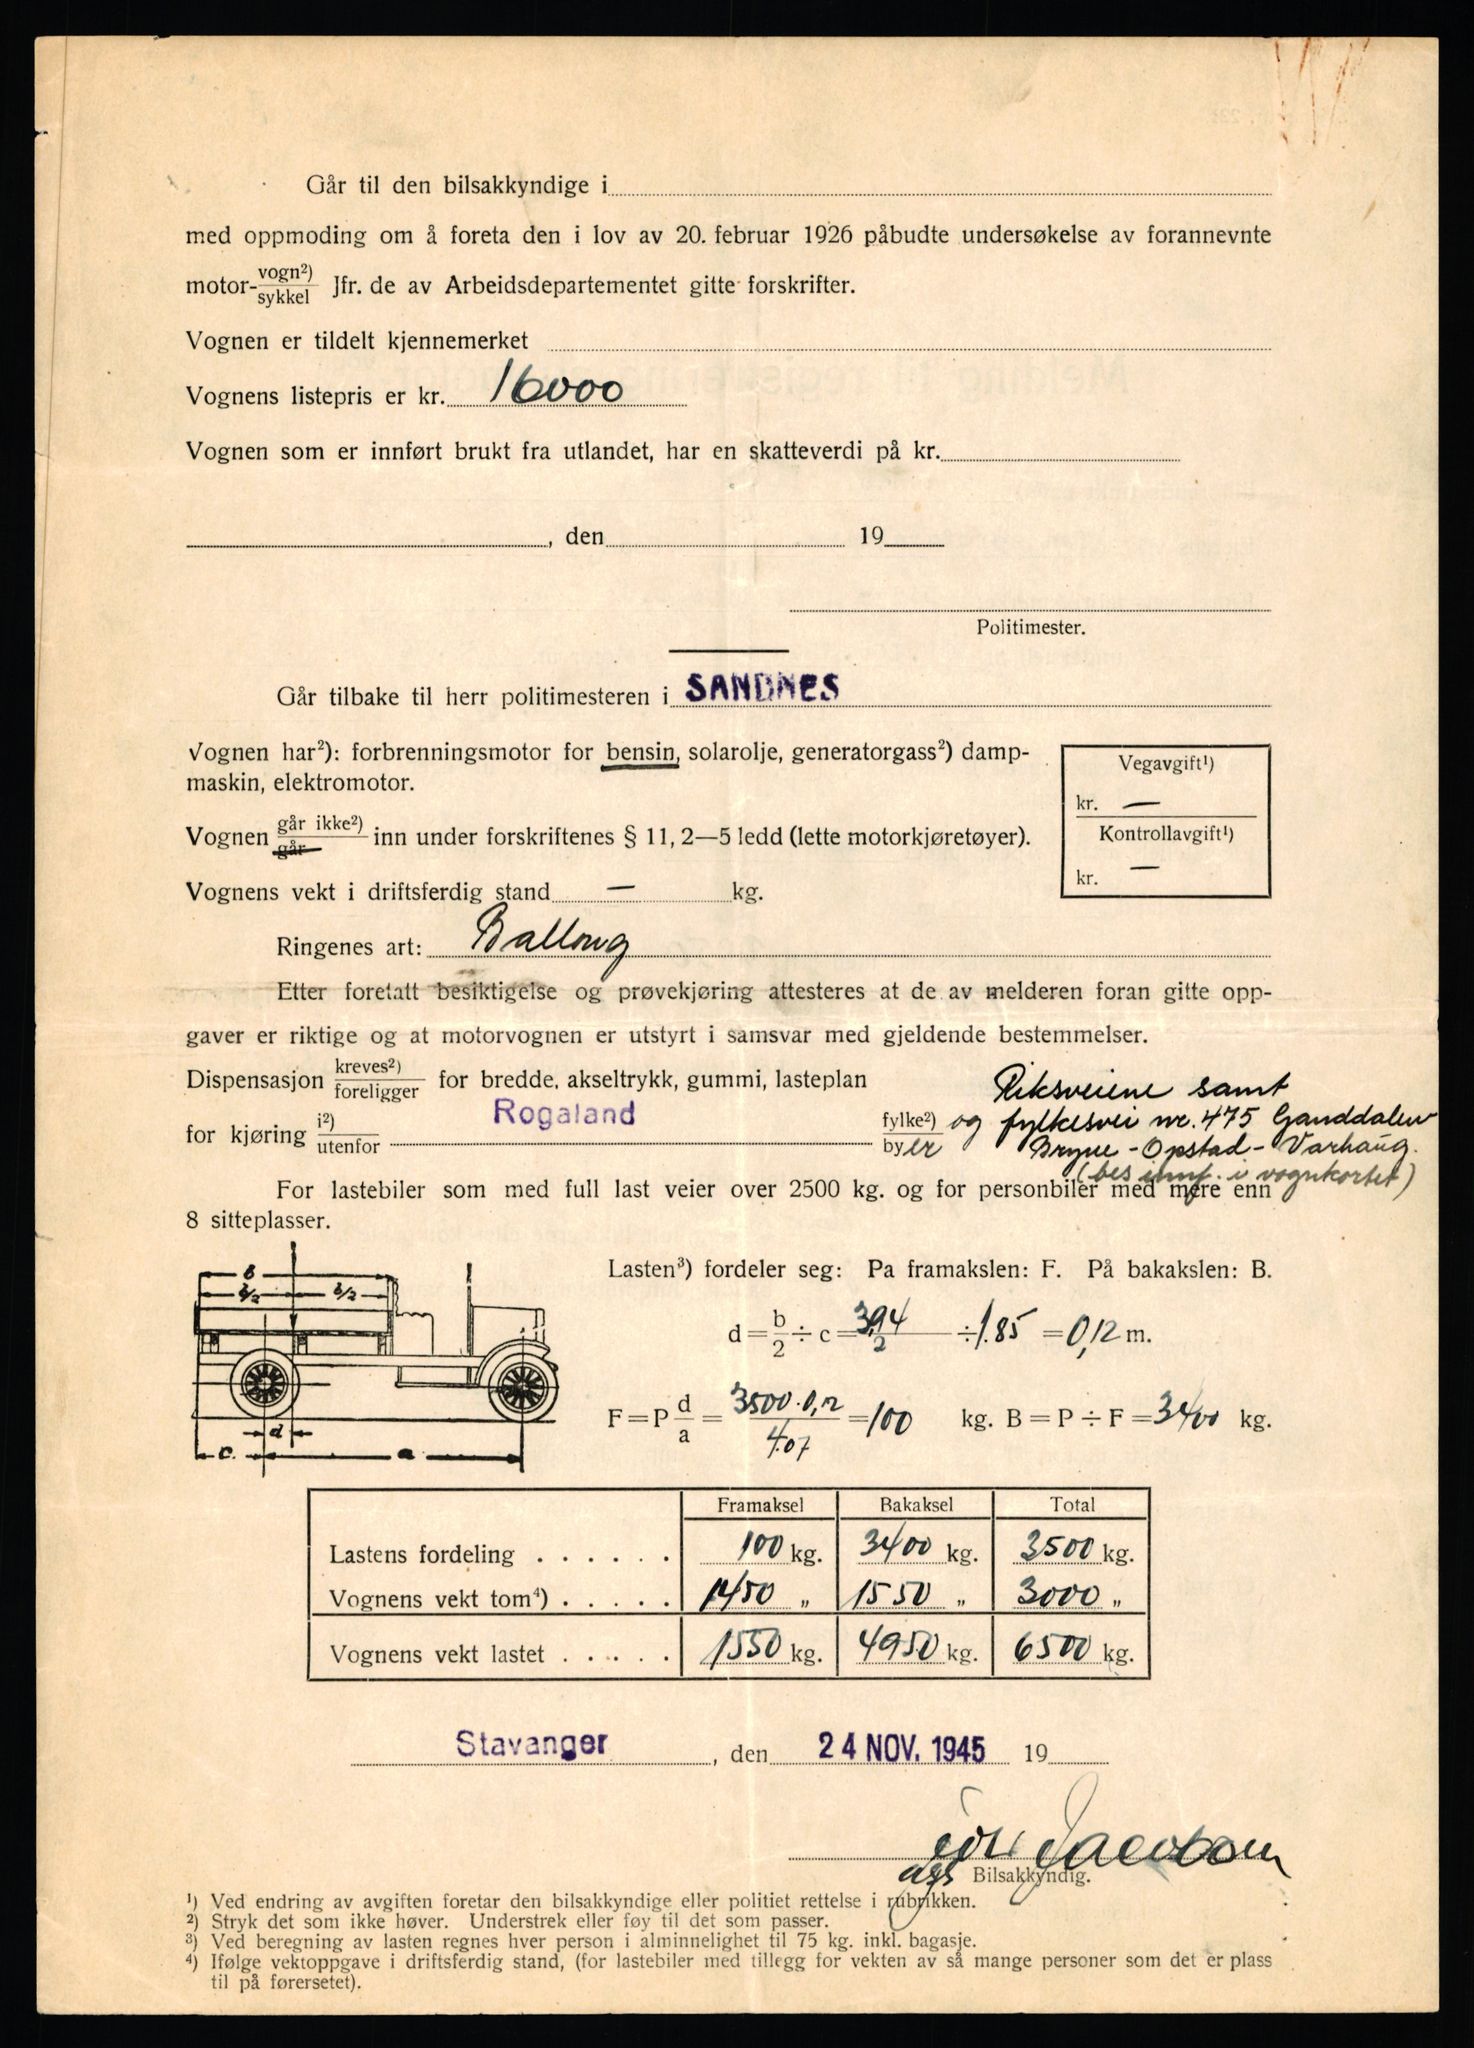 Går til den bilsakkyndige i
med oppmoding om å foreta den i lov av 20. februar 1926 påbudte undersøkelse av forannevnte
motor- vogn²) / sykkel Jfr. de av Arbeidsdepartementet gitte forskrifter.
Vognen er tildelt kjennemerket
Vognens listepris er kr. 16000
Vognen som er innført brukt fra utlandet, har en skatteverdi på kr.
, den 19
Politimester.
Går tilbake til herr politimesteren i SANDNES
Vognen har²): forbrenningsmotor for bensin, solarolje, generatorgass²) damp-
maskin, elektromotor.
Vegavgift¹)
kr. —
Kontrollavgift¹)
kr. —
Vognen går ikke²) / går inn under forskriftenes § 11, 2—5 ledd (lette motorkjøretøyer).
Vognens vekt i driftsferdig stand — kg.
Ringenes art: Ballong
Etter foretatt besiktigelse og prøvekjøring attesteres at de av melderen foran gitte opp-
gaver er riktige og at motorvognen er utstyrt i samsvar med gjeldende bestemmelser.
Dispensasjon kreves²) / foreligger for bredde, akseltrykk, gummi, lasteplan
Riksveiene samt
for kjøring i²) / utenfor Rogaland fylke²) / by er og fylkesvei nr. 475 Ganddalen
Bryne - Opstad - Varhaug.
(bes innf. i vognkortet)
For lastebiler som med full last veier over 2500 kg. og for personbiler med mere enn
8 sitteplasser.
b
b/2 b/2
d
c. a
Lasten³) fordeler seg: Pa framakslen: F. På bakakslen: B.
d = b/2 ÷ c = 3,94/2 ÷ 1.85 = 0,12 m.
F = P d/a = 3500 · 0,12 / 4.07 = 100 kg. B = P ÷ F = 3400 kg.
Framaksel Bakaksel Total
Lastens fordeling . . . . . . 100 kg. 3400 kg. 3500 kg.
Vognens vekt tom⁴) . . . . . 1450 „ 1550 „ 3000 „
Vognens vekt lastet . . . . . 1550 kg. 4950 kg. 6500 kg.
Stavanger, den 24 NOV. 1945 19
Jacobsen
ass Bilsakkyndig.
¹) Ved endring av avgiften foretar den bilsakkyndige eller politiet rettelse i rubrikken.
²) Stryk det som ikke høver. Understrek eller føy til det som passer.
³) Ved beregning av lasten regnes hver person i alminnelighet til 75 kg. inkl. bagasje.
⁴) Ifølge vektoppgave i driftsferdig stand, (for lastebiler med tillegg for vekten av så mange personer som det er plass
til på førersetet).